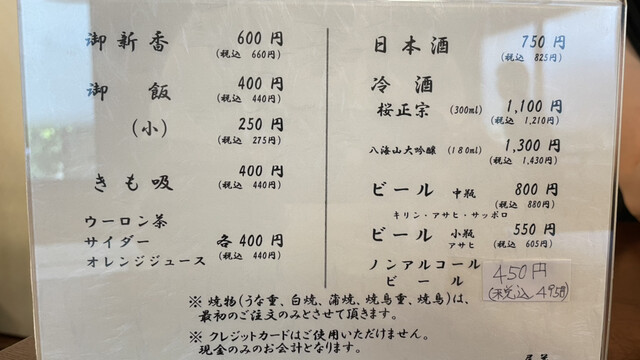 御新香 600円
(税込 660円)
御飯 400円
(税込 440円)
(小) 250円
(税込 275円)
きも吸 400円
(税込 440円)
ウーロン茶
サイダー 各400円
オレンジジュース (税込 440円)
日本酒 750円
(税込 825円)
冷酒
桜正宗 (300ml) 1,100円
(税込 1,210円)
八海山大吟醸 (180ml) 1,300円
(税込 1,430円)
ビール 中瓶 800円
(税込 880円)
キリン・アサヒ・サッポロ
ビール 小瓶 550円
アサヒ (税込 605円)
ノンアルコール
ビール 450円
(税込 495円)
※ 焼物(うな重、白焼、蒲焼、焼鳥重、焼鳥)は、
最初のご注文のみとさせて頂きます。
※ クレジットカードはご使用いただけません。
現金のみのお会計となります。